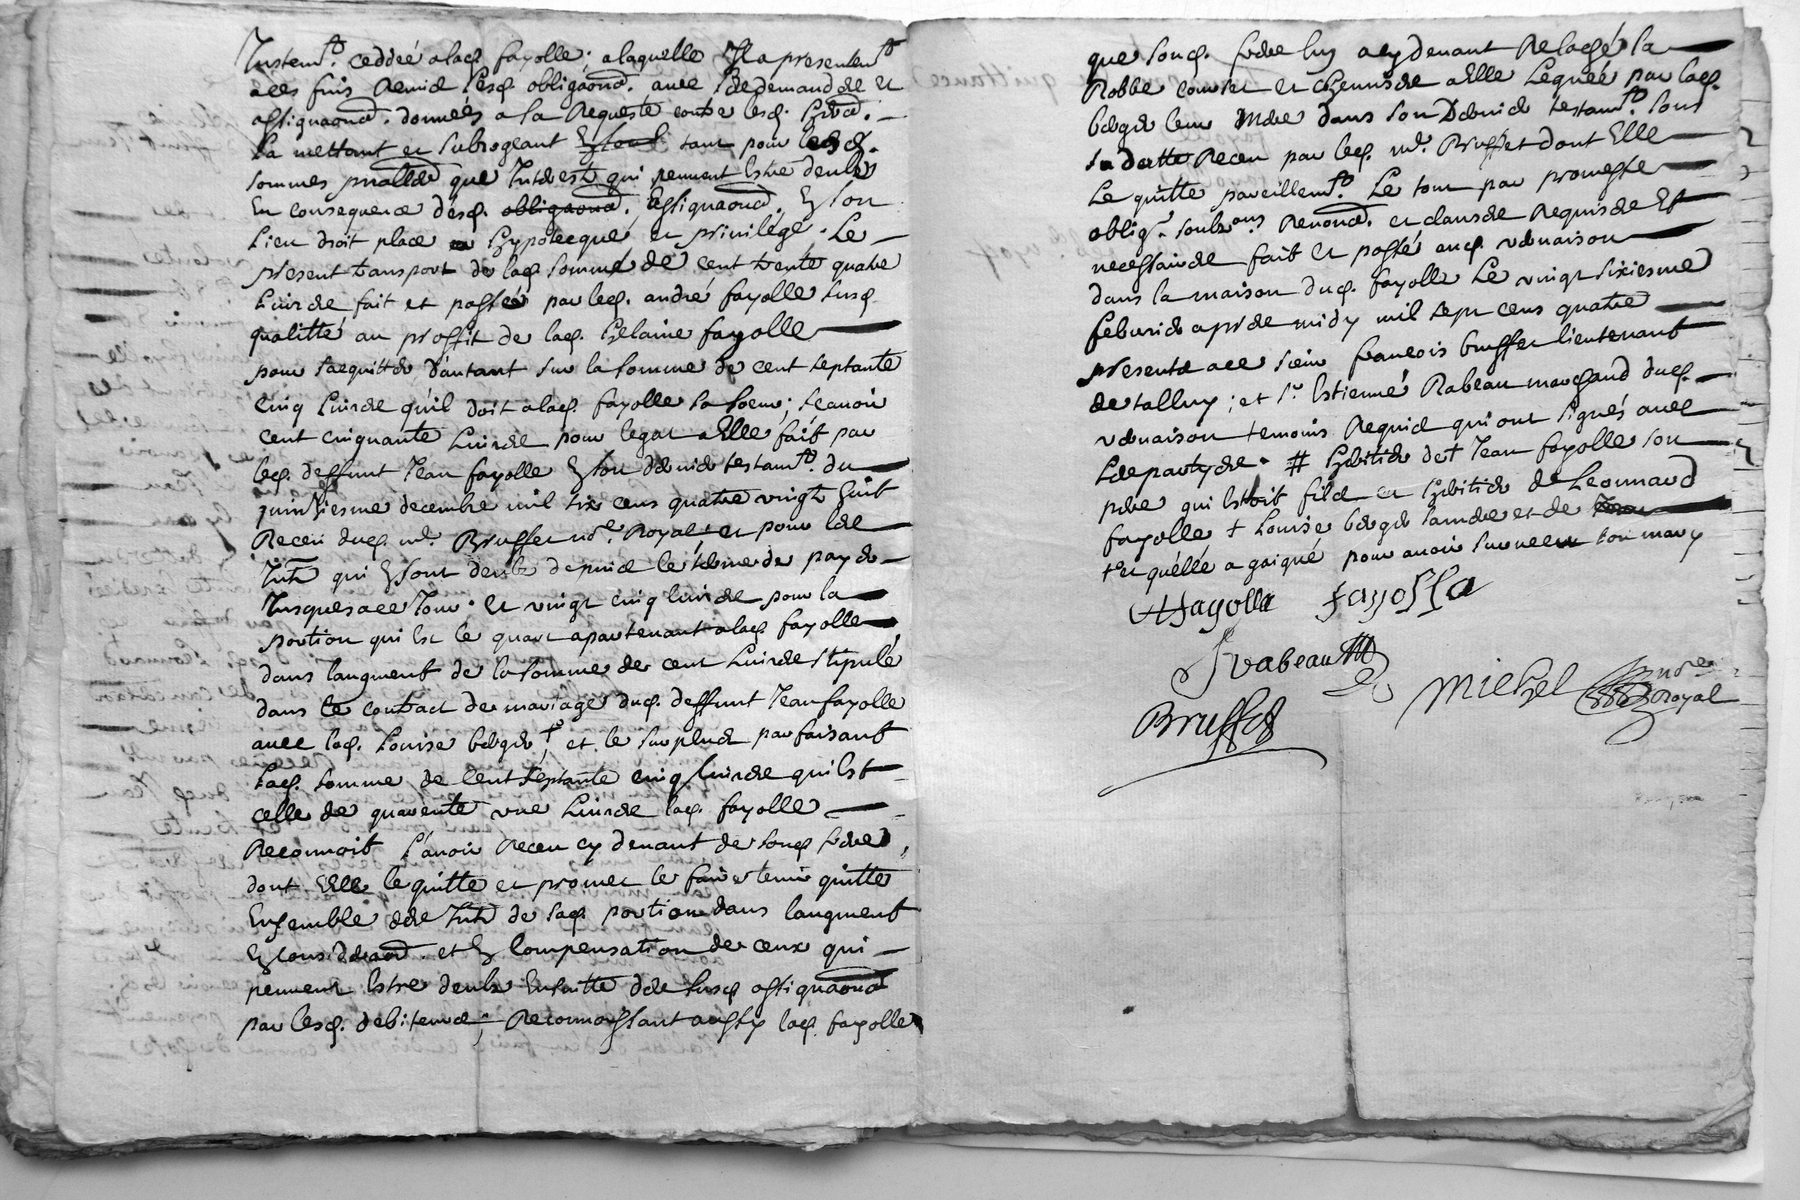 Justemt. ceddée a lad. fayolle ; a laquelle Il a presentemt.
a ces fins Remis lesd. obligaons. avec  demande et
assignaons. données a sa Requeste contre lesd. 
la mettant et subrogeant tant pour lesd.
sommes pnalles que Interest qui peuvent Estre deubs
En consequence desd. obligaons. assignaons. En son
Lieu droit place hypotecque et privilége . Le
present transport de lad. somme de cent trente quatre
Livres fait et passée par led. andré fayolle susd.
qualitté au proffit de lad. helaine fayolle
pour sacquitter dautant sur la somme de cent septante
cinq Livres qu'il doit a lad. fayolle sa soeur ; scavoir
cent cinquante Livres pour legat a Elle fait par
led. deffunt Jean fayolle En son dernier testamt. du
quinziesme decembre mil six cens quatre vingt huit
Receu dud. me. Bruffet nre. Royal et pour les
Intts qui En sont deubs depuis le terme de payer
Jusques a ce Jour . et vingt cinq livres pour la
portion qui Est le quart apartenant a lad. fayolle
dans laugment de la somme de cent Livres stipulé
dans le contract de mariage dud. deffunt Jean fayolle
avec lad. Louise berger † et le surplus parfaisant
lad. somme de cent septante cinq Livres qui Est
celle de quarente une Livres lad. fayolle
Reconnoit l'avoir Receu cy devant de sond. frere ,
dont Elle le quitte et promet le faire tenir quitte
Ensemble des Intts de sad. portion dans laugment
En consideraon. et En compensation de ceux qui
peuvent Estre deubs Ensuitte des susd. assignaons
par lesd. debiteurs ; Reconnoissant aussy lad. fayolle
que sond. frere luy a cy devant Relaché la
Robbe et chemises a Elle Leguée par lad.
berger leur Mere dans son Dernier testamt. sous
sa datte Receu par led. me. Bruffet dont Elle
Le quitte pareillemt. Le tout par promesse
oblig. soubzons Renons. et clauses Requises Et
necessaires fait et passé aud. vernaison
dans la maison dud. fayolle Le vingt sixiesme
febvrier apres midy mil sept cens quatre
presents a ce sieur francois bruffet lieutenant
de talluy ; et sr. Estienne Rabeau marchand dud.
vernaison temoins Requis qui ont signés avec
Les partyes . # heritier de † Jean fayolle son
pere qui Estoit fils et heritier de Leonnard
fayolle † Louise berger sa mere et de
† et qu'elle a gaigné pour avoir survecu son mary
Hfayolle fayolle
Rabeau
Bruffet Michel nre
Royal